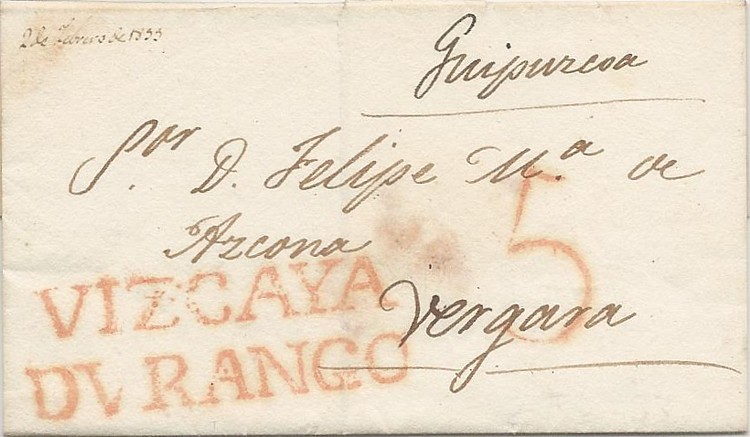 2 de febrero de 1833
Guipuzcoa
S.or D. Felipe M.a de
Azcona
5
Vergara
VIZCAYA
DVRANGO